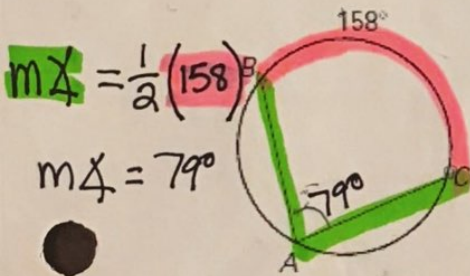 158°
m∡ = 1/2 (158)
B
m∡ = 79°
79°
C
A